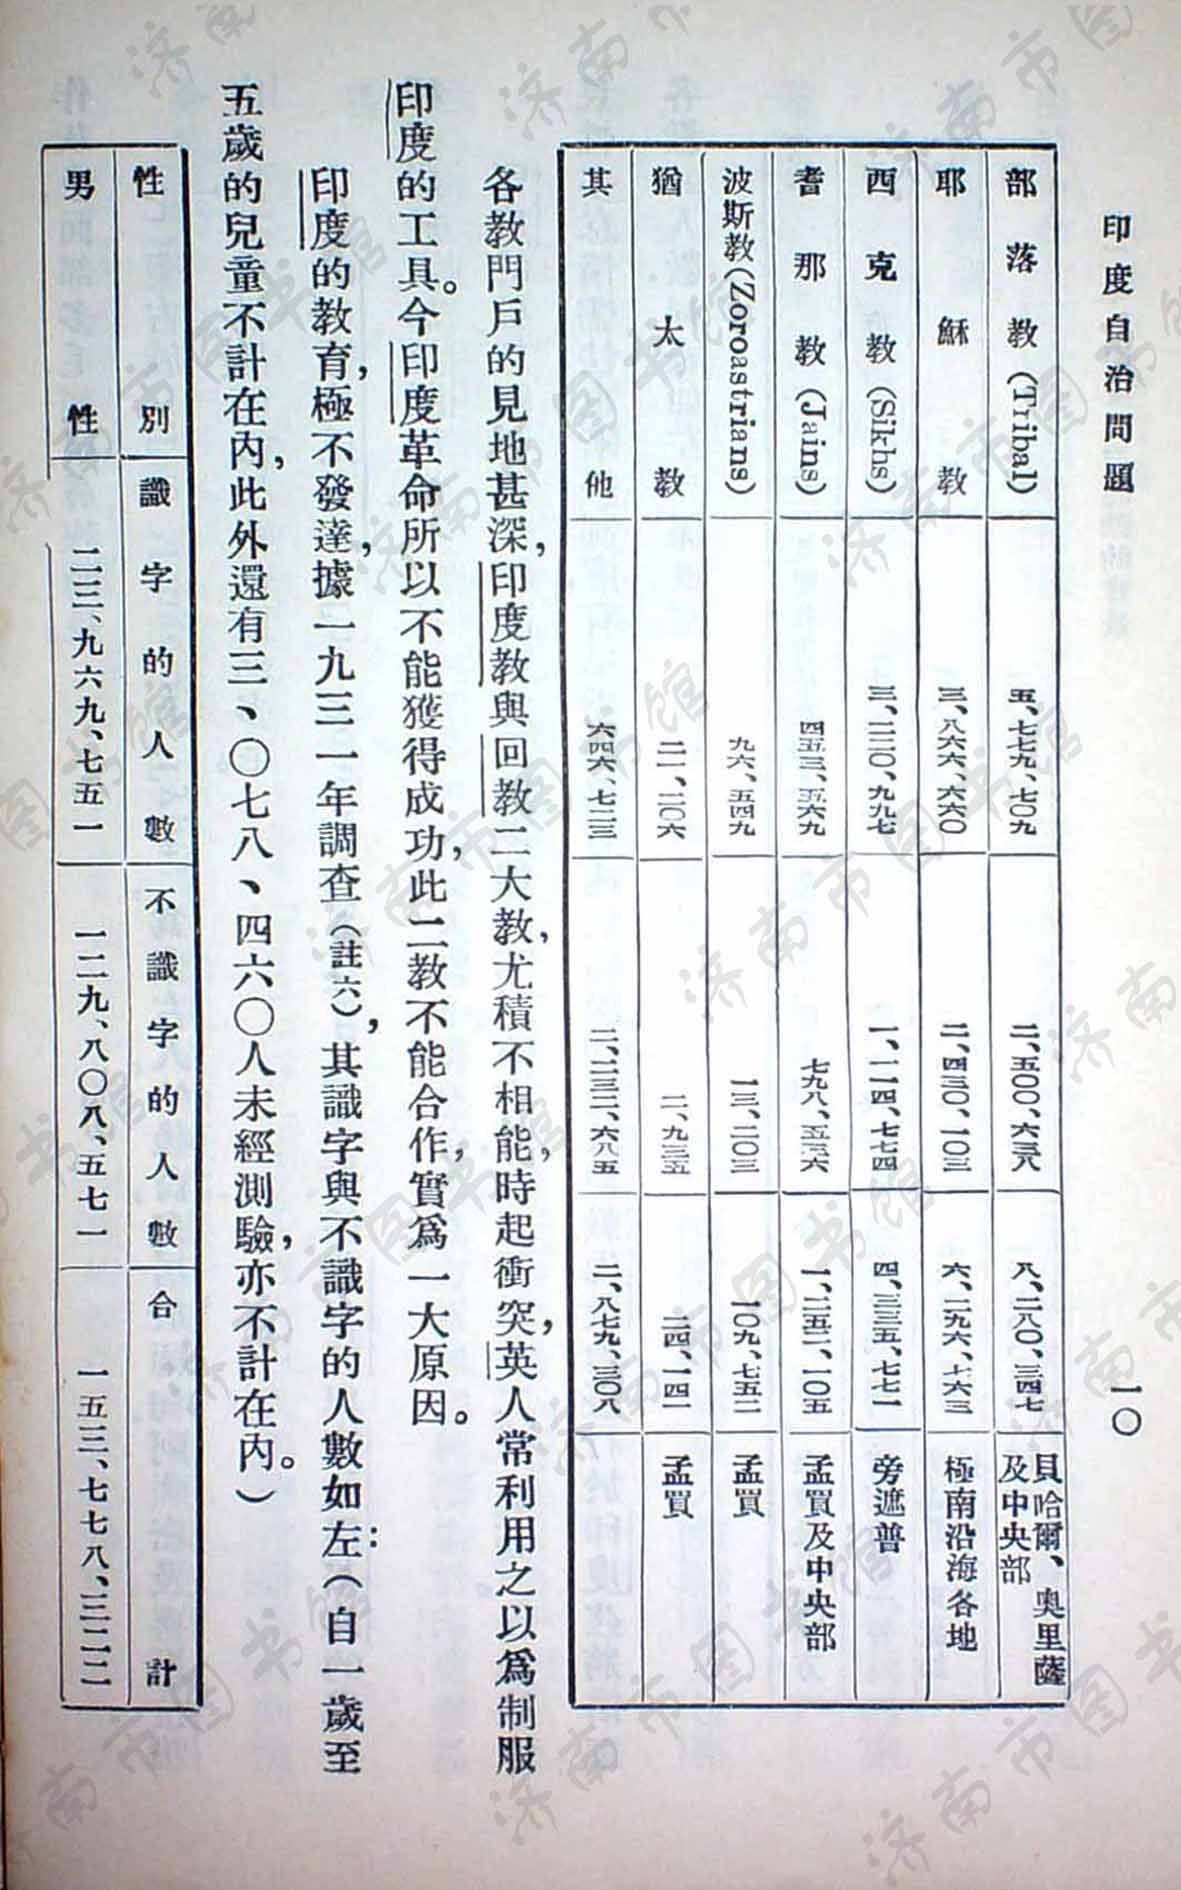 印度自治問題
一〇
部落教(Tribal) 五、七七九、七〇九 二、五〇〇、六三八 八、二八〇、三四七 貝哈爾、奧里薩
及中央部
耶穌教 三、八六六、六六〇 二、四三〇、一〇三 六、二九六、七六三 極南沿海各地
西克教(Sikhs) 三、二二〇、九九七 一、一一四、七七四 四、三三五、七七一 旁遮普
耆那教(Jains) 四五三、五六九 七九八、五三六 一、二五二、一〇五 孟買及中央部
波斯教(Zoroastrians) 九六、五四九 一三、二〇三 一〇九、七五二 孟買
猶太教 二一、二〇六 二、九三五 二四、一四一 孟買
其他 六四六、七二三 二、二三二、六八五 二、八七九、三〇八
各教門戶的見地甚深，印度教與回教二大教，尤積不相能，時起衝突，英人常利用之以爲制服
印度的工具。今印度革命所以不能獲得成功，此二教不能合作，實爲一大原因。
印度的教育，極不發達，據一九三一年調查（註六），其識字與不識字的人數如左：（自一歲至
五歲的兒童不計在內，此外還有三、〇七八、四六〇人未經測驗，亦不計在內。）
性別 識字的人數 不識字的人數 合計
男性 二三、九六九、七五一 一二九、八〇八、五七一 一五三、七七八、三二二
济南市图书馆